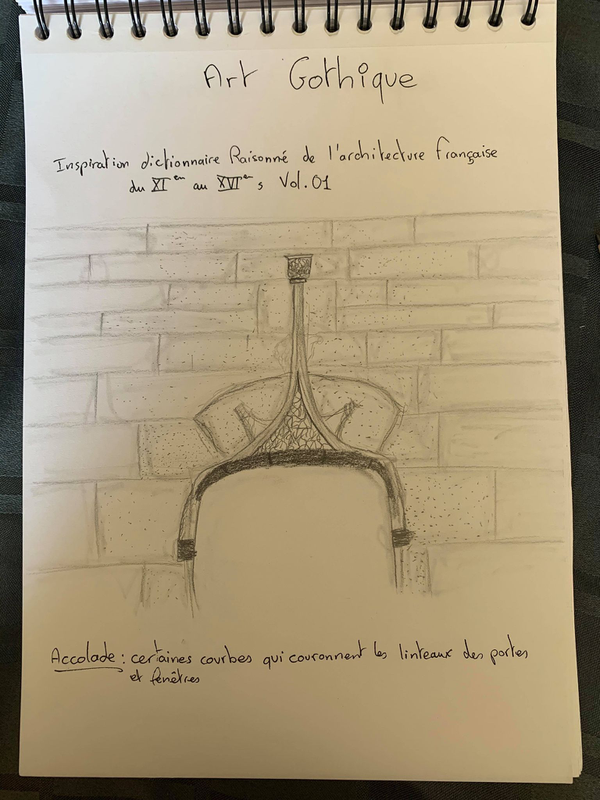 Art Gothique
Inspiration dictionnaire Raisonné de l'architecture française
du XIem au XVIem s Vol.01
Accolade : certaines courbes qui couronnent les linteaux des portes
et fenêtres